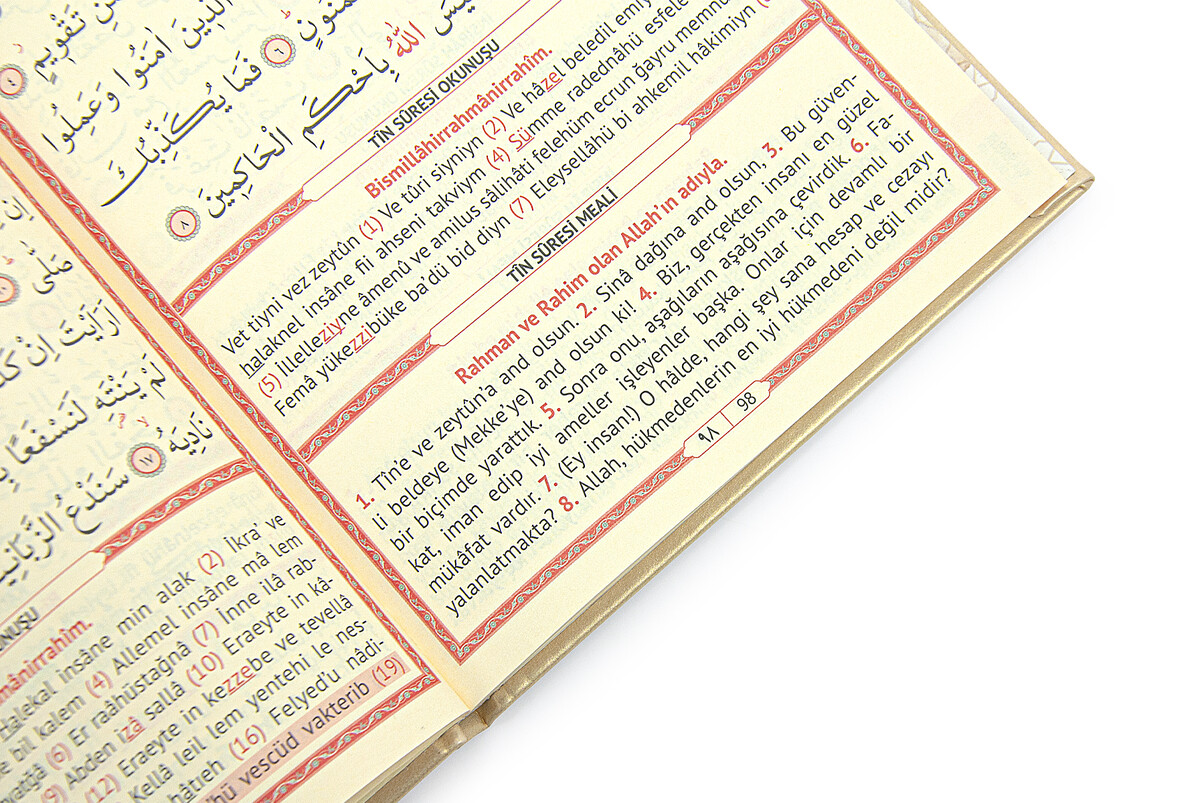 تَقْوِيمٍ ٤
الَّذِينَ اٰمَنُوا وَعَمِلُوا
٦ فَمَا يُكَذِّبُكَ
اللّٰهُ بِاَحْكَمِ الْحَاكِمِينَ ٨
TÎN SÛRESİ OKUNUŞU
Bismillâhirrahmânirrahîm.
Vet tiyni vez zeytûn (1) Ve tûri siyniyn (2) Ve hâzel beledil
halaknel insâne fii ahseni takviym (4) Sümme radednâhü
(5) Illelleziyne âmenû ve amilus sâlihâti felehüm ecrun ğayru
Femâ yükezzibüke ba'dü bid diyn (7) Eleysellâhü bi ahkemil hâkimiyn
TÎN SÛRESİ MEALİ
Rahman ve Rahim olan Allah'ın adıyla.
1. Tîn'e ve zeytûn'a and olsun. 2. Sinâ dağına and olsun, 3. Bu güven-
li beldeye (Mekke'ye) and olsun ki! 4. Biz, gerçekten insanı en güzel
bir biçimde yarattık. 5. Sonra onu, aşağıların aşağısına çevirdik. 6. Fa-
kat, iman edip iyi ameller işleyenler başka. Onlar için devamlı bir
mükâfat vardır. 7. (Ey insan!) O hâlde, hangi şey sana hesap ve cezayı
yalanlatmakta? 8. Allah, hükmedenlerin en iyi hükmedeni değil midir?
٩٨ 98
اِنْ
صَلّٰى
اَرَاَيْتَ اِنْ
لَمْ يَنْتَهِ لَنَسْفَعًا
نَادِيَهُ ١٧ سَنَدْعُ
insâne min alak (2) İkra' ve
bil kalem (4) Allemel insâne mâ lem
(6) Er raâhüstağnâ (7) İnne ilâ rab-
(9) Abden izâ sallâ (10) Eraeyte in kâ-
(12) Eraeyte in kezzebe ve tevellâ
Kellâ leil lem yentehi le nes-
(16) Felyed'u nâdi-
vescüd vakterib (19)